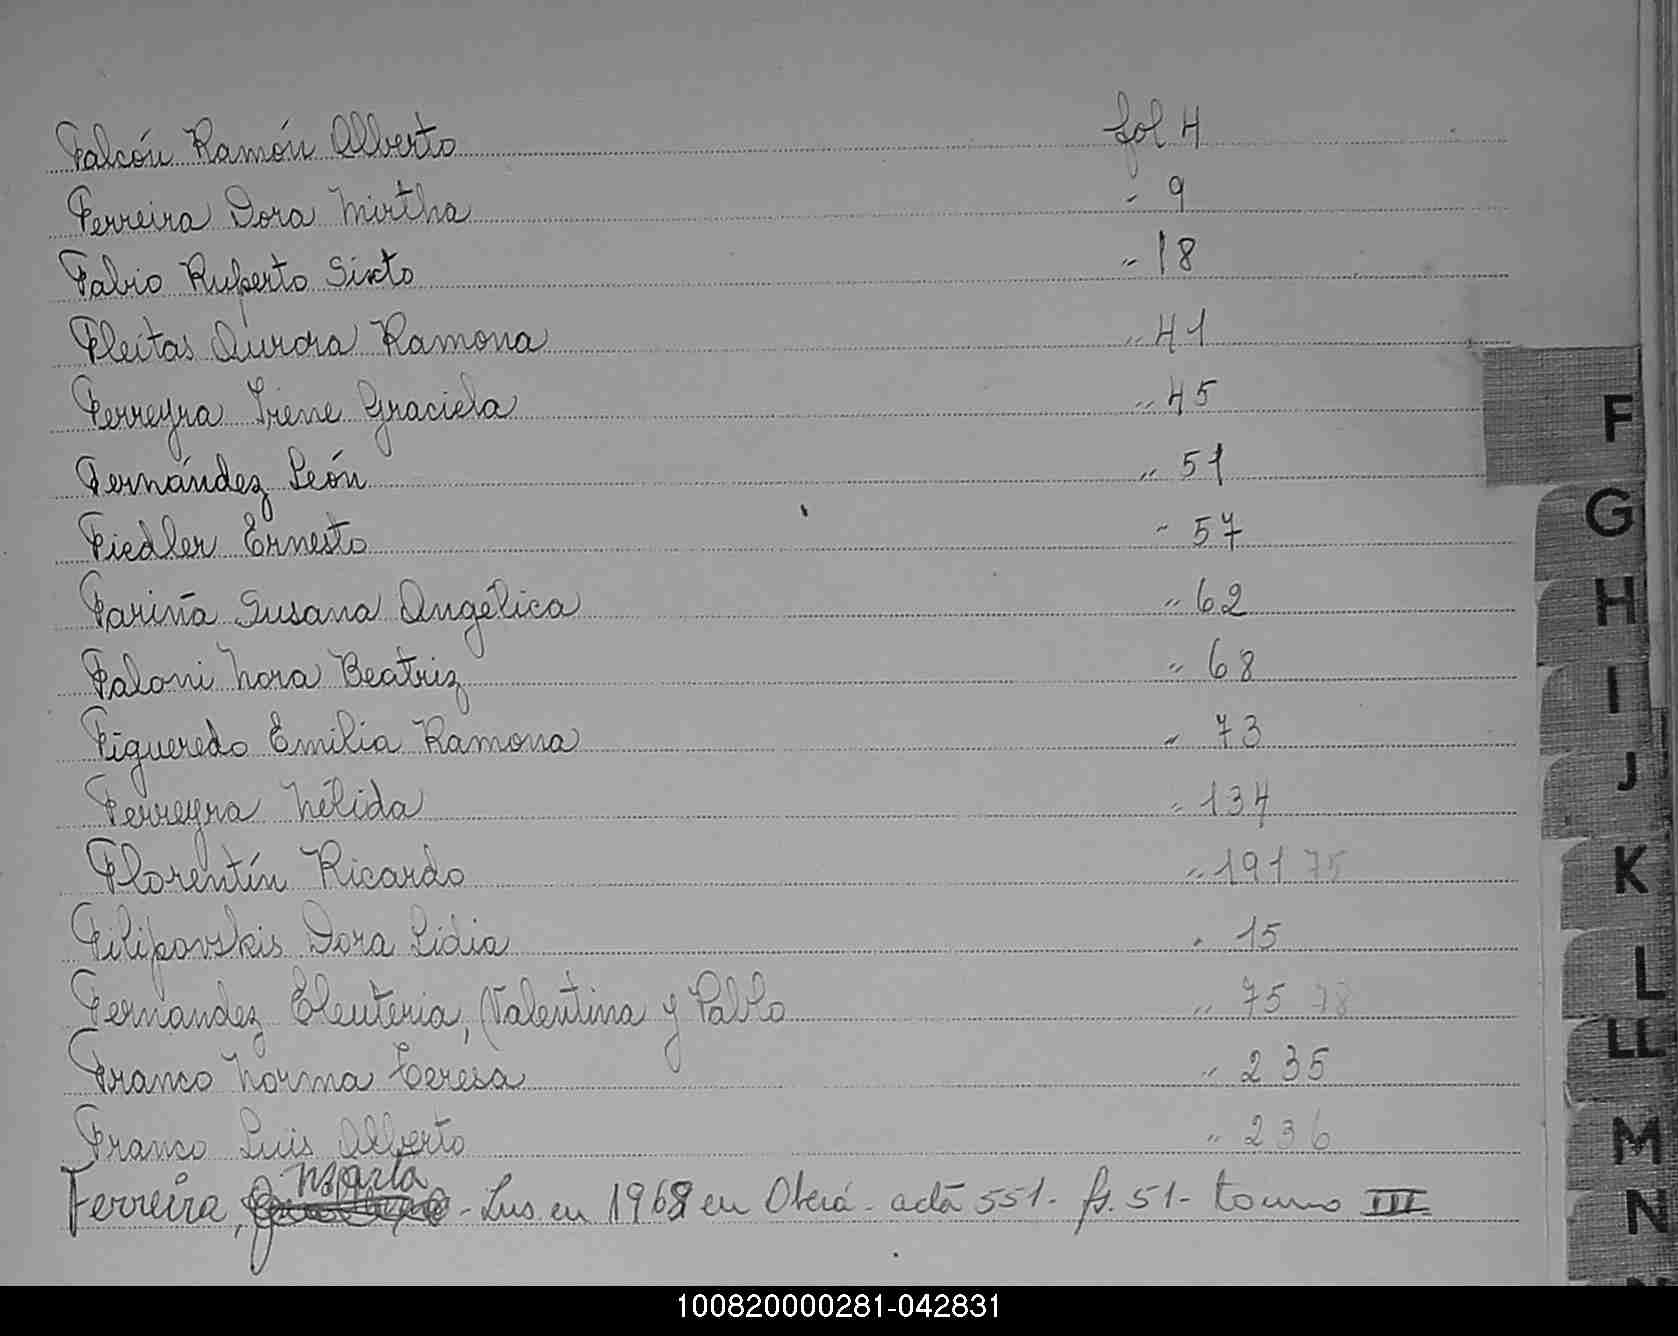 Falcón Ramón Alberto fol 4
Ferreira Dora Mirtha " 9
Fabio Ruperto Sixto " 18
Fleitas Aurora Ramona " 41
Ferreyra Irene Graciela " 45
Fernández León " 51
Fiedler Ernesto " 57
Fariña Susana Angélica " 62
Faloni Nora Beatriz " 68
Figueredo Emilia Ramona " 73
Ferreyra Nélida " 134
Florentín Ricardo " 191 75
Filipovskis Dora Lidia " 15
Fernandez Eleuteria, Valentina y Pablo " 75 78
Franco Norma Teresa " 235
Franco Luis Alberto " 236
Marta
Ferreira, - Ins en 1968 en Oberá - acta 551 - fs. 51 - tomo III
F
G
H
I
J
K
L
LL
M
N
100820000281-042831